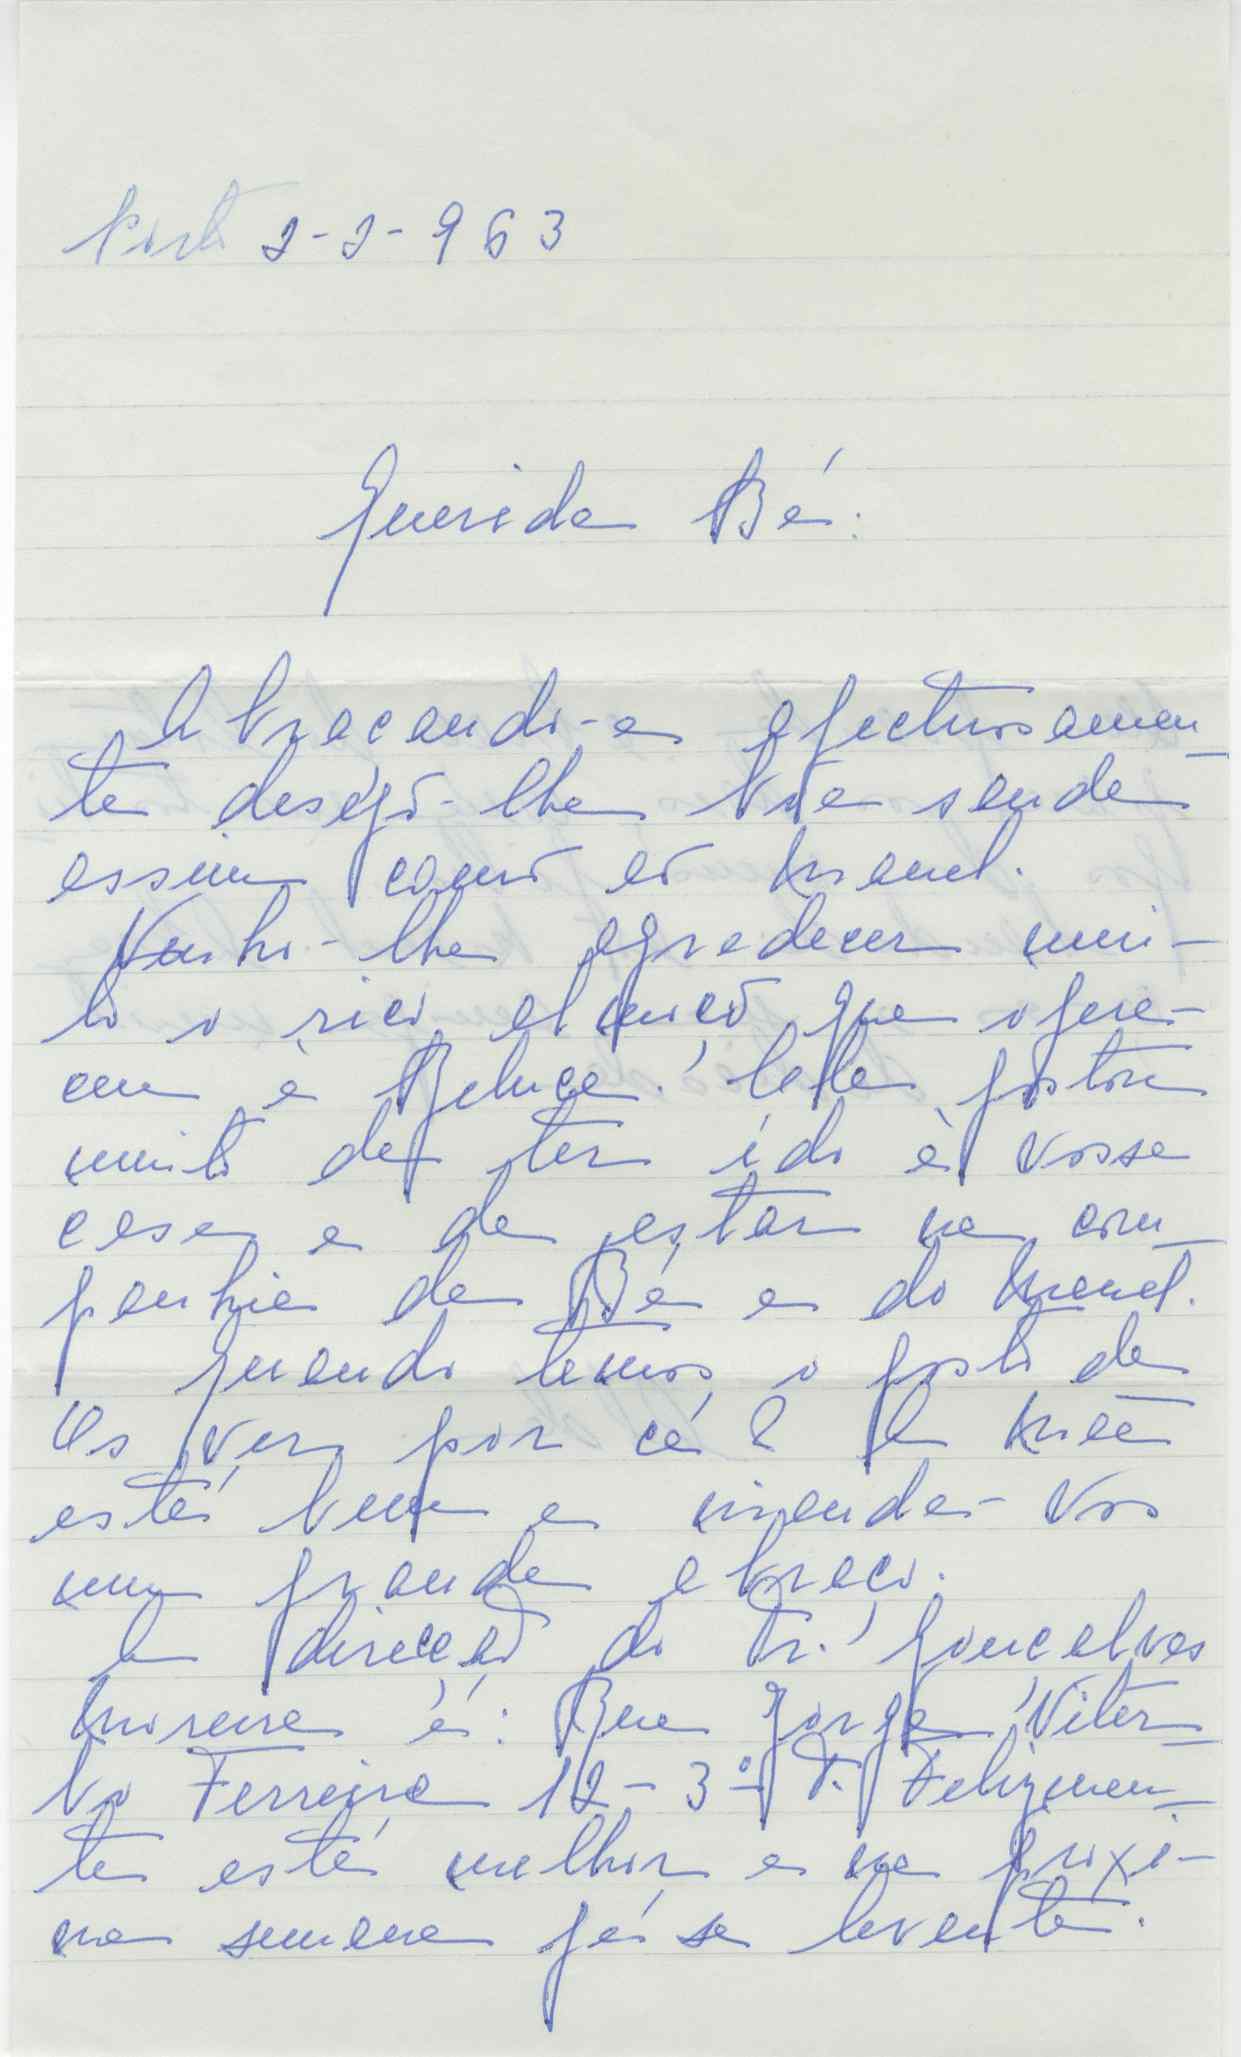 Porto 2-2-963
Querida Bé:
Abraçando-a afectuosamen
te desejo-lhe boa saude
assim como ao Manel.
Venho-lhe agradecer mui-
to o rico almoço que ofere-
ceu à Beluca. Ella gostou
muito de ter ido à vossa
casa e de estar na com
panhia da Bé e do Manel.
Quando temos o gosto de
Os ver por cá? A Mãe
está bem e manda-vos
um grande abraço.
A direcção do Dr. Gonçalves
Moreira é: Rua Jorge Viter
bo Ferreira 12-3º F. Felizmen
te está melhor e na próxi-
ma semana já se levanta.